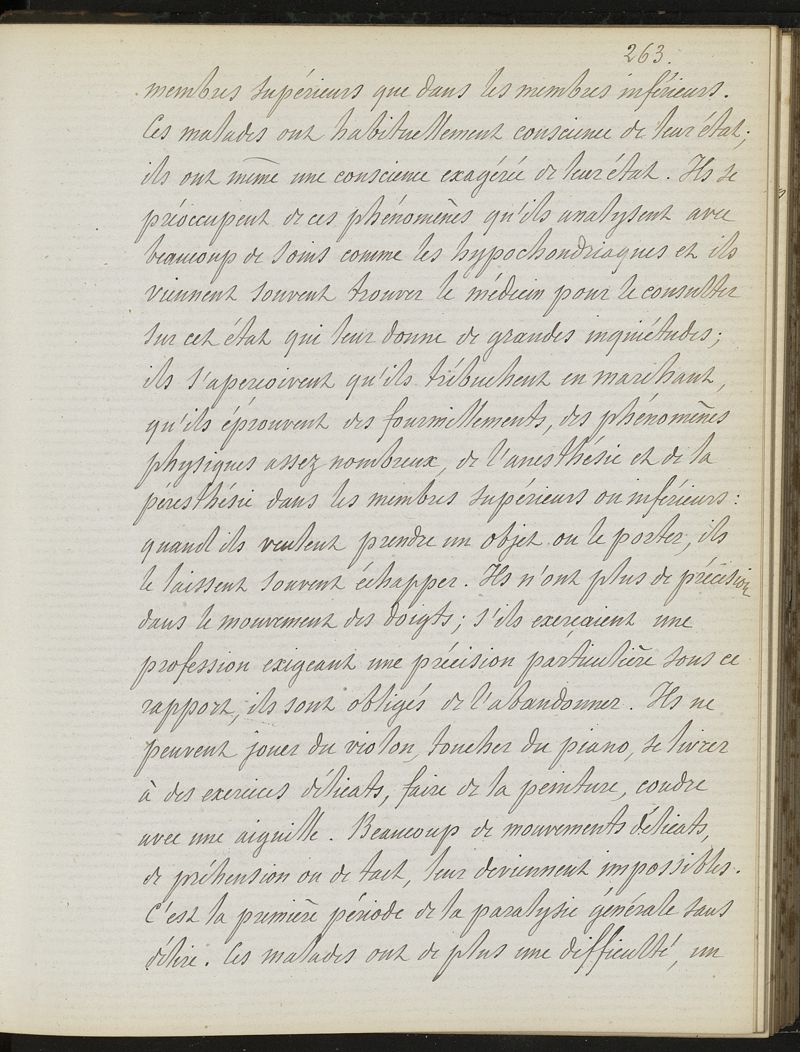 263.
membres supérieurs que dans les membres inférieurs.
Ces malades ont habituellement conscience de leur état;
ils ont même une conscience exagérée de leur état. Ils se
préoccupent de ces phénomènes qu'ils analysent avec
beaucoup de soins comme les hypochondriaques et ils
viennent souvent trouver le médecin pour le consulter
sur cet état qui leur donne de grandes inquiétudes;
ils s'aperçoivent qu'ils trébuchent en marchant,
qu'ils éprouvent des fourmillements, des phénomènes
physiques assez nombreux, de l'anesthésie et de la
péresthésie dans les membres supérieurs ou inférieurs:
quand ils veulent prendre un objet ou le porter, ils
le laissent souvent échapper. Ils n'ont plus de précision
dans le mouvement des doigts; s'ils exerçaient une
profession exigeant une précision particulière sous ce
rapport, ils sont obligés de l'abandonner. Ils ne
peuvent jouer du violon, toucher du piano, se livrer
à des exercices délicats, faire de la peinture, coudre
avec une aiguille. Beaucoup de mouvements délicats,
de préhension ou de tact, leur deviennent impossibles.
C'est la première période de la paralysie générale sans
délire. Ces malades ont de plus une difficulté, un